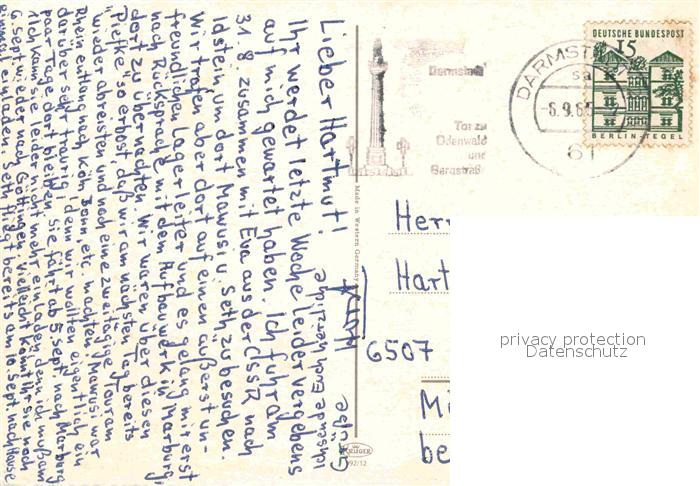 Lieber Hartmut!
Ihr werdet letzte Woche leider vergebens
auf mich gewartet haben. Ich fuhr am
31. 8. zusammen mit Eva aus der CSSR nach
Idstein, um dort Mawusi u. Seth zu besuchen.
Wir trafen aber dort auf einen äußerst un-
freundlichen Lagerleiter und es gelang mir erst
nach Rücksprache mit dem Aufbauwerk in Marburg,
dort zu übernachten. Wir waren über diesen
"Piefke" so erbost, daß wir am nächsten Tag bereits
wieder abreisten und noch eine zweitägige Tour am
Rhein entlang nach Köln, Bonn, etc. machten. Mawusi war
darüber sehr traurig, denn wir wollten eigentlich ein
paar Tage dort bleiben. Sie fährt ab 5. Sept. nach Marburg
Ich kann sie leider nicht mehr einladen, denn ich muß am
6. Sept. wieder nach Göttingen. Vielleicht könnt Ihr sie noch
einmal einladen. Seth fliegt bereits am 10. Sept. nach Hause
Grüße
tausende Euch herzliche
Made in Western Germany
KRÜGER
92/12
Darmstadt
Tor zu
Odenwald
und
Bergstraße
DARMSTADT
6.9.6
61
DEUTSCHE BUNDESPOST
15
BERLIN-TEGEL
Herr
Hart
6507
be
privacy protection
Datenschutz